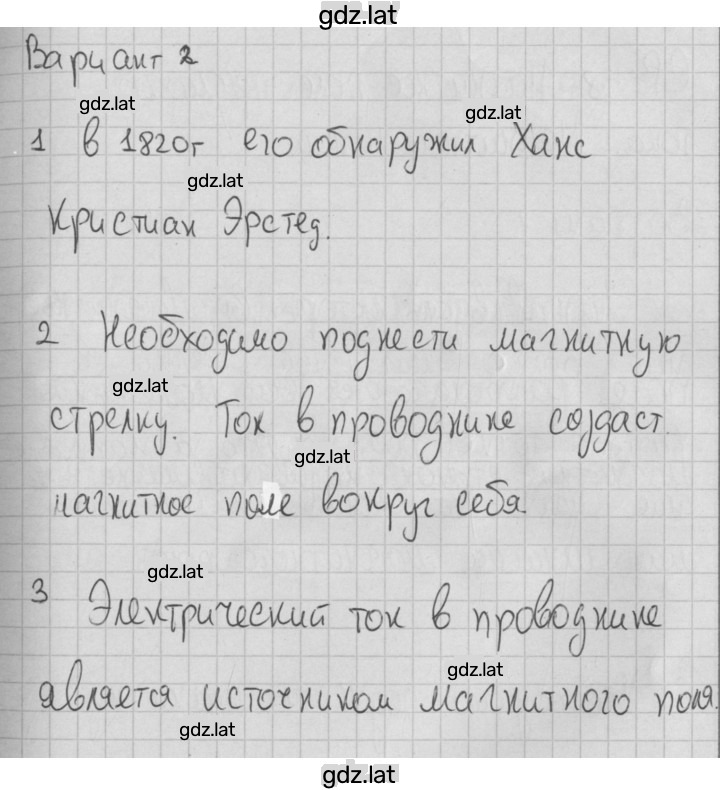 gdz.lat
Вариант 2
gdz.lat
gdz.lat
1 в 1820г его обнаружил Ханс
gdz.lat
Кристиан Эрстед.
2 Необходимо поднести магнитную
gdz.lat
стрелку. Ток в проводнике создаст
gdz.lat
магнитное поле вокруг себя.
gdz.lat
3 Электрический ток в проводнике
gdz.lat
является источником магнитного поля.
gdz.lat
gdz.lat